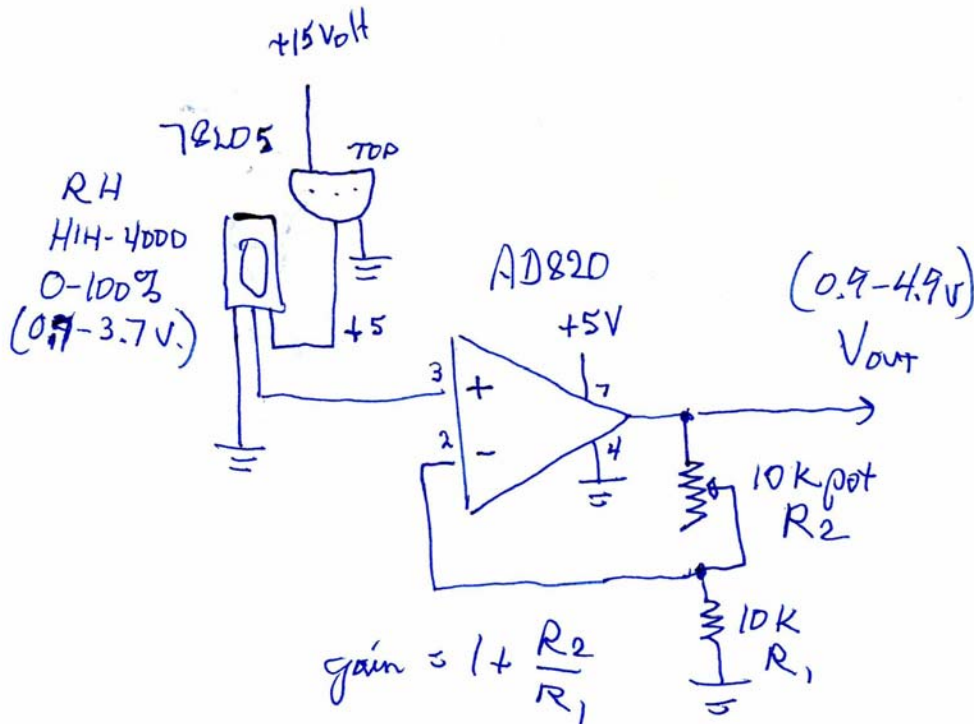 +15 Volt
78L05
TOP
RH
HIH-4000
0-100%
(0.9-3.7 V.)
+5
AD820
+5V
3
+
7
2
-
4
(0.9-4.9v)
Vout
10K pot
R2
10K
R1
gain = 1 + R2/R1